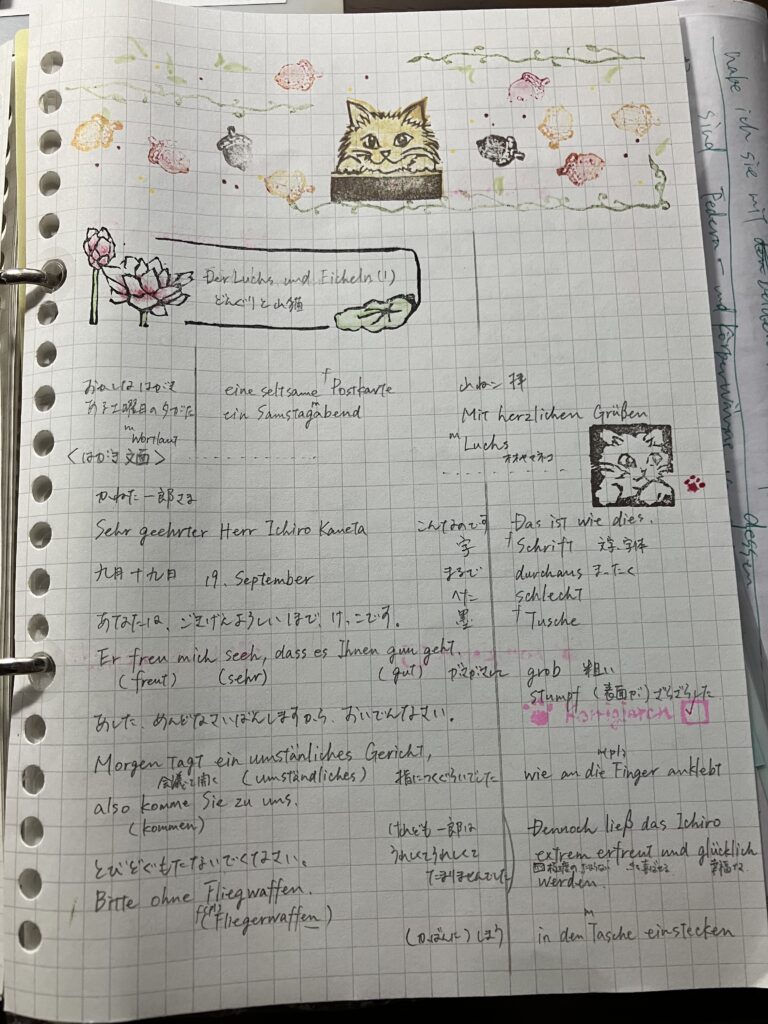 Der Luchs und Eicheln (1)
どんぐりと山猫
おかしなはがき eine seltsame Postkarte
f
ある土曜日の夕がた ein Samstagabend
m
m Wortlaut
<はがき文面>
かねた一郎さま
Sehr geehrter Herr Ichiro Kaneta
九月十九日 19. September
あなたは、ごきげんよろしいほで、けっこです。
Er freu mich seeh, dass es Ihnen gun geht.
(freut) (sehr) (gut)
あした、めんどなさいばんしますから、おいでんなさい。
Morgen tagt ein umstänliches Gericht,
会議を開く (umständliches)
also komme Sie zu uns.
(kommen)
とびどぐもたないでくなさい。
Bitte ohne Fliegwaffen.
(Fliegerwaffen)
山ねこ 拝
Mit herzlichen Grüßen
m Luchs
オオヤマネコ
こんなのです Das ist wie dies.
字 f Schrift 文字、字体
まるで durchaus まったく
へた schlecht
墨 f Tusche
がさがさして grob 粗い
stumpf (表面が)ざらざらした
指につくくらいでした wie an die Finger anklebt
けれども一郎は Dennoch ließ das Ichiro
うれしくてうれしくて extrem erfreut und glücklich
たまりませんでした werden.
(かばんに)しまう in den Tasche einstecken
m
habe ich sie mit
sind Federn- und Körperwärme
dessen